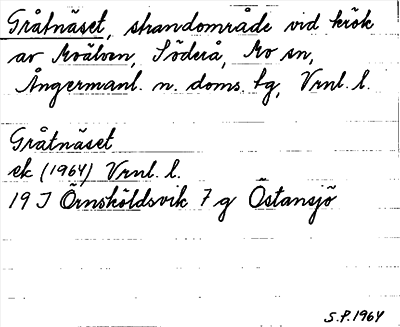 Gråtnäset, strandområde vid krök
av Moälven, Söderå, Mo sn,
Ångermanl. n. doms. tg, Vrnl. l.
Gråtnäset
ek (1964) Vrnl. l.
19 J Örnsköldsvik 7 g Östansjö
S.P. 1964